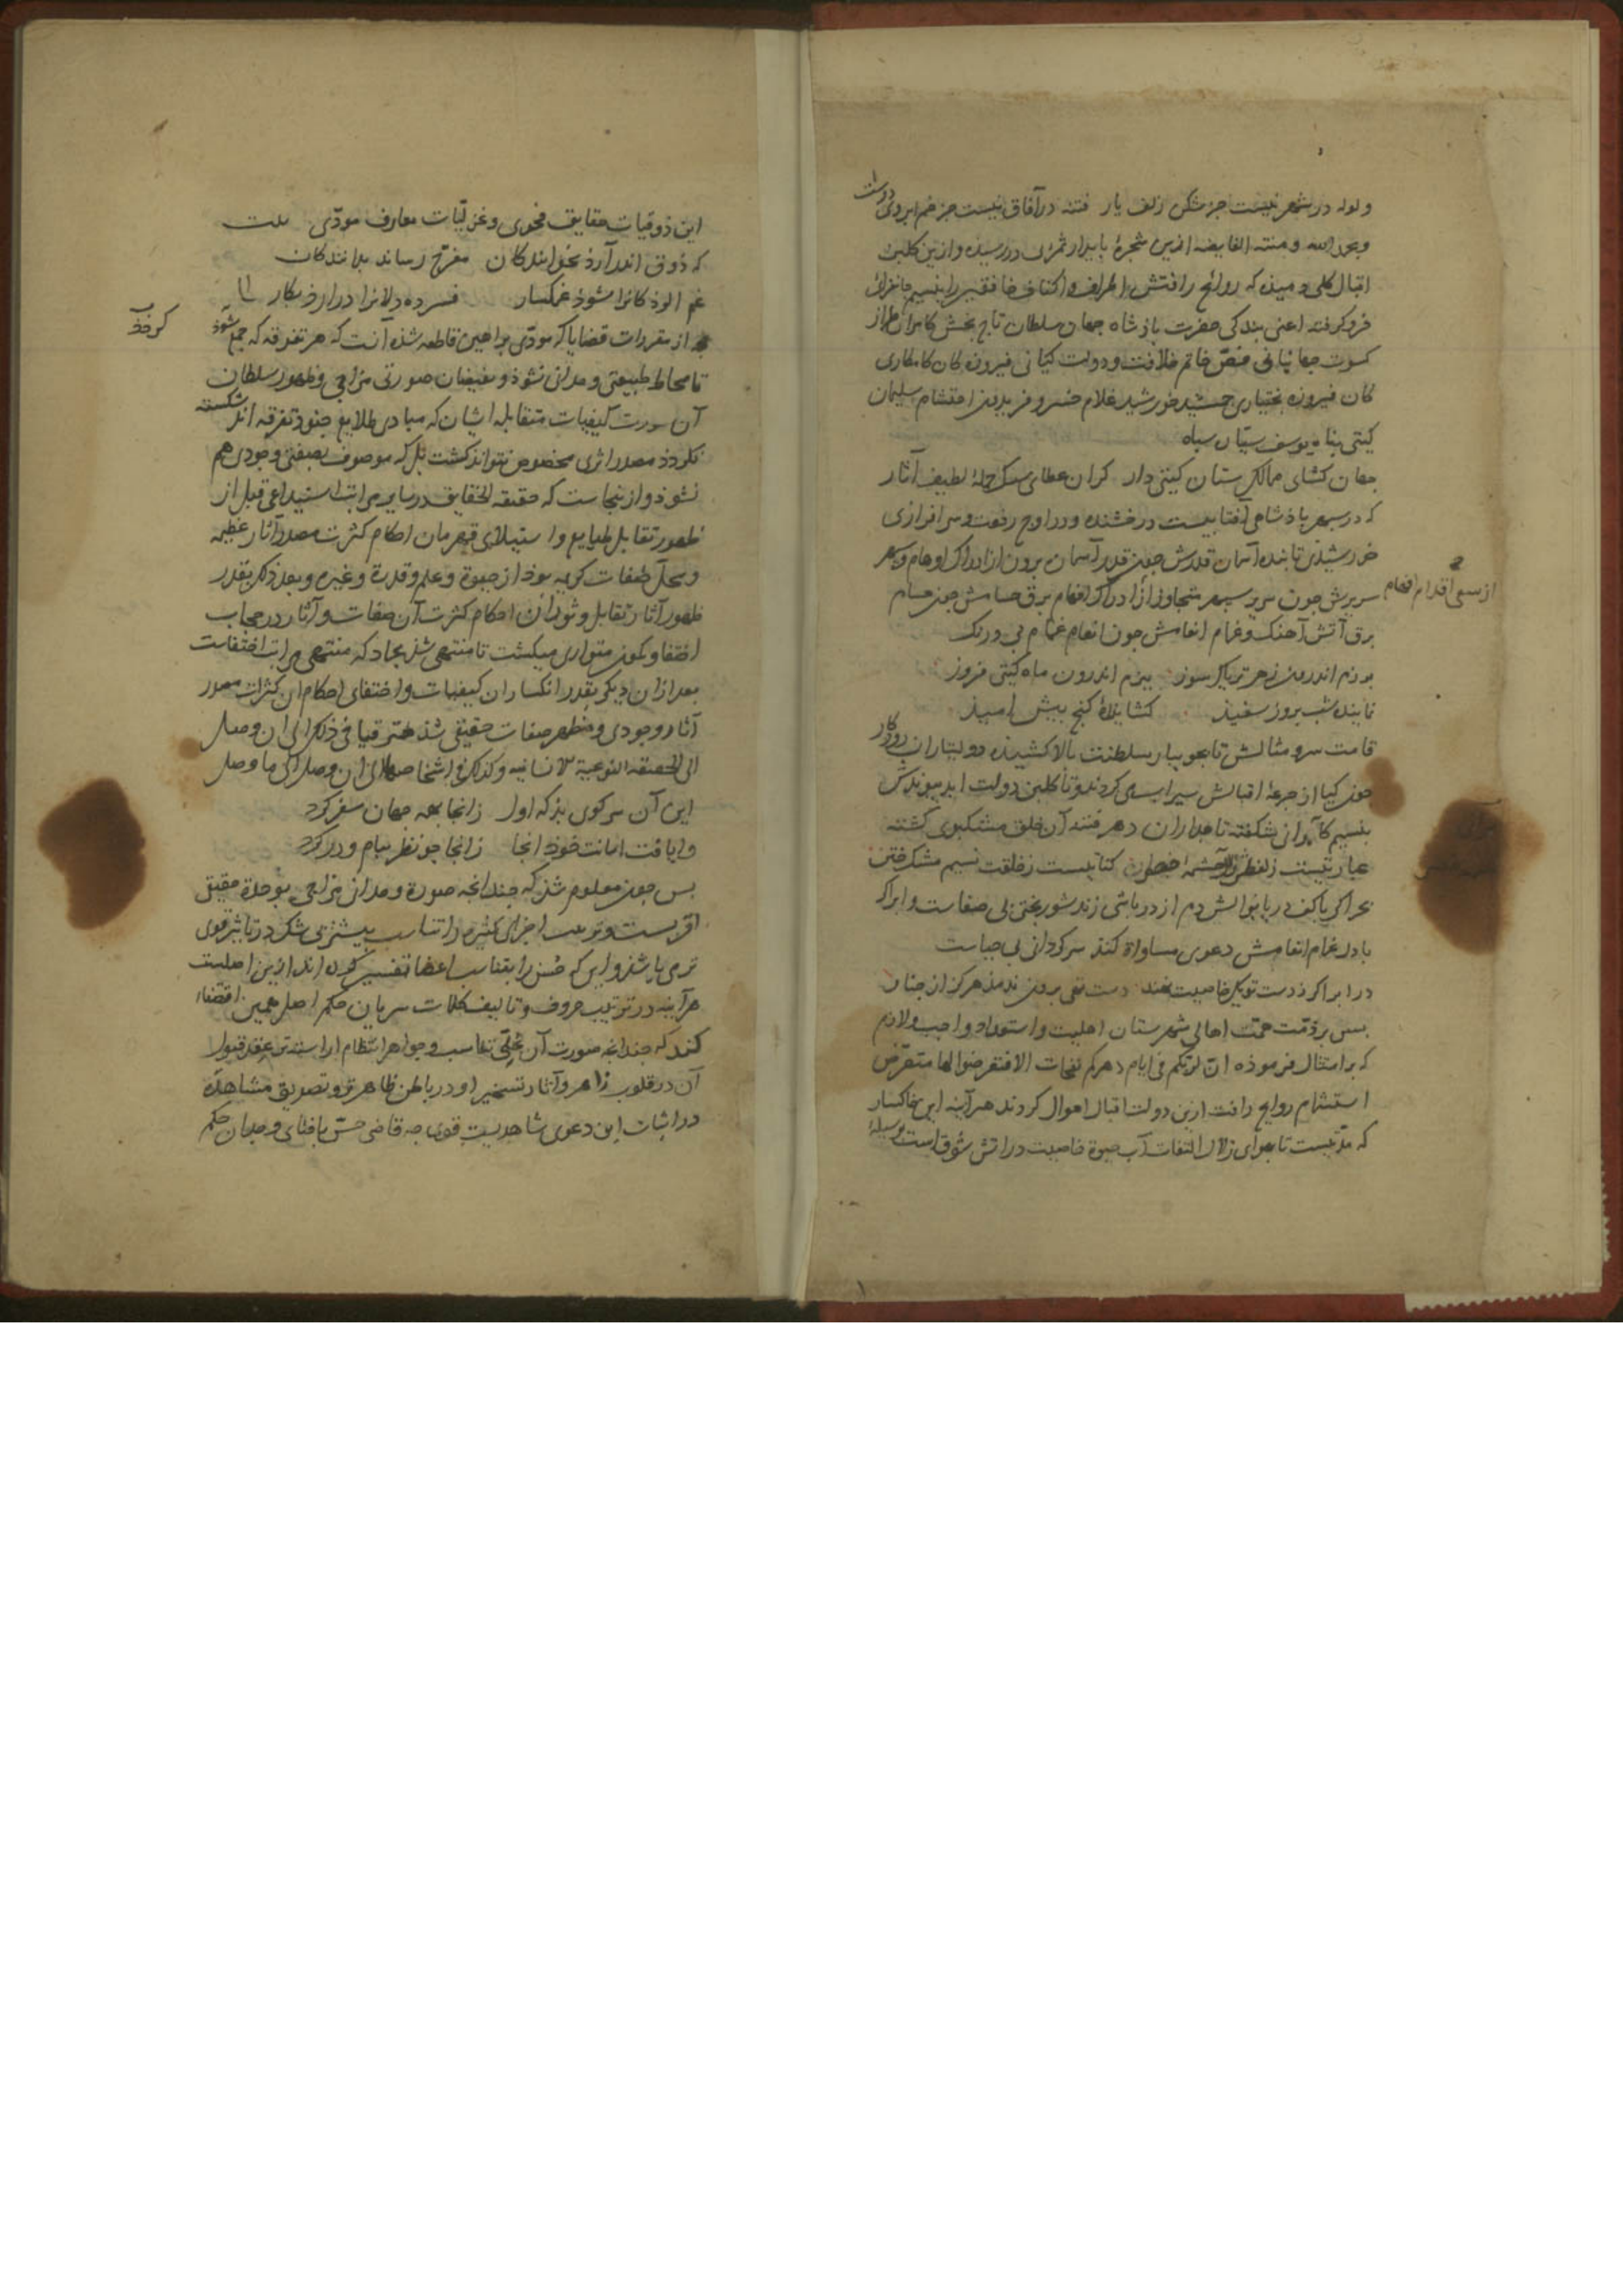 ولوله در شهر نیست جز شکن زلف یار فتنه در آفاق نیست جز خم ابروی دوست
وبحمد الله ومنته الفایضه ازین شجرهٔ پایدار ثمران در رسیده و ازین کلبن
اقبال کلی دمیذه که روایح رافتش اطراف و اکناف خافقین را بنسیم جانفزای
فرو کرفته اعنی بندکی حضرت باذشاه جهان سلطان تاج بخش کامران طراز
کسوت جهانبانی فص خاتم خلافت و دولت کیانی فیروزه کان کامکاری
کان فیروزه بختیاری جمشید خورشید غلام خسرو فریدون احتشام سلیمان
کیتی پناه یوسف ستان سپاه
جهان کشای ممالک ستان کیتی دار کران عطای سبک حملهٔ لطیف آثار
که در سپهر باذشاهی آفتابیست درخشنده و در اوج رفعت و سرافرازی
خورشیذی تابنده آسمان قدرش چون قدر آسمان برون از ادراک اوهام و
سریرش چون سریر سپهر متجاوز از ادراک افهام برق حسامش چون حسام
از سعی اقدام افهام
برق آتش آهنک و غمام انعامش چون انعام غمام بی درنک
برزم اندرون زهر تریاک سوز ببزم اندرون ماه کیتی فروز
نماینده شب بروز سفیذ کشایندهٔ کنج پیش امیذ
قامت سرو مثالش تا بجویبار سلطنت بالا کشیذه دولتیاران روزکار
چون کیا از جرعهٔ اقبالش سیرابی کردند و تا کلبن دولت ابد پیوندش
بنسیم کامرانی شکفته تاجداران دهر فتنه آن خلق مشکبوی کشته
عبارتیست زلفظش چشمه حیوان کنایتیست زخلقت نسیم مشک ختن
بحر اکر با کف دریا نوالش دم از در پاشی زند شوربختی بی صفاست و ابر اکر
با دل غمام انعامش دعوی مساواة کند سرکردانی بی حیاست
در ابر اکر ز دست تو یک خاصیت نهند دست تهی برون ندمد هرکز از چنار
بس بر ذمت همت اهالی شهرستان اهلیت و استعداد واجب و لازم
که بر امتثال فرموذه ان لربکم فی ایام دهرکم نفحات الا فتعرضوا لها متعرض
استشمام روایح رافت ازین دولت اقبال احوال کردند هرآینه این خاکسار
که مدتیست تا بهوای زلال التفات آب حیوة خاصیت در آتش شوق است بوسیلهٔ
این ذوقیات حقایق فحوی و غزلیات معارف مودی بیت
که ذوق اندر آرذ بخوانندکان مفرح رساند بدانندکان
غم آلوذکانرا شوذ غمکسار فسرده دلانرا درآرذ بکار
از مقررات قضایا که مودی براهین قاطعه شده آنست که هر تفرقه که جمع نشوذ
تا محاط طبیعتی وحدانی نشوذ و بفیضان صورتی مزاجی و ظهور سلطان
آن صورت کیفیات متقابله ایشان که مبادی طلایع جنود تفرقه اند شکسته
نکردذ مصدر اثری مخصوص نتواند کشت بل که موصوف بصفتی وجودی هم
نشوذ و ازینجاست که حقیقة الحقایق در سایر مراتب استیداعی قبل از
ظهور تقابل طبایع و استیلای قهرمان احکام کثرت مصدر آثار عظیمه
و محل صفات کریمه بوذ از حیوة و علم و قدرة و غیره و بعد ذلک بقدر
ظهور آثار تقابل و ثوران احکام کثرت آن صفات و آثار در حجاب
اختفا و کمون متواری میکشت تا منتهی شذ بجماد که منتهی مراتب اختفاست
بعد ازان دیکر بقدر انکسار آن کیفیات و اختفای احکام آن کثرات مصدر
آثار وجودی و مظهر صفات حقیقی شذ مترقیا فی ذلک الی ان وصل
الی الحقیقة النوعیة الانسانیه وکذلک فی اشخاصها الی ان وصل الی ما وصل
این آن سر کوی بذ که اول زانجا بهمه جهان سفر کرد
وایافت امانت خوذ آنجا زانجا چو نظر ببام و در کرد
بس چون معلوم شذ که چندانچه صورة وحدانی مزاجی بوحدة حقیقی
اقربست و ترتیب اجزای کثیره را تناسب بیشتر بی شک در تاثیر قوی
تر می باشد و این که حسن را بتناسب اعضا تفسیر کرده اند ازین اصلیت
هرآینه در ترتیب حروف و تالیف کلمات سریان حکم اصل همین اقتضا
کند که چندانچه صورت آن بحلی تناسب و جواهر انتظام آراسته تر عقد قبول
آن در قلوب زاهر و آثار تسخیر او در باطن ظاهرتر و تصویق مشاهده
در اثبات این دعوی شاهدیست قوی چه قاضی حسن بافتای وجدان حکم